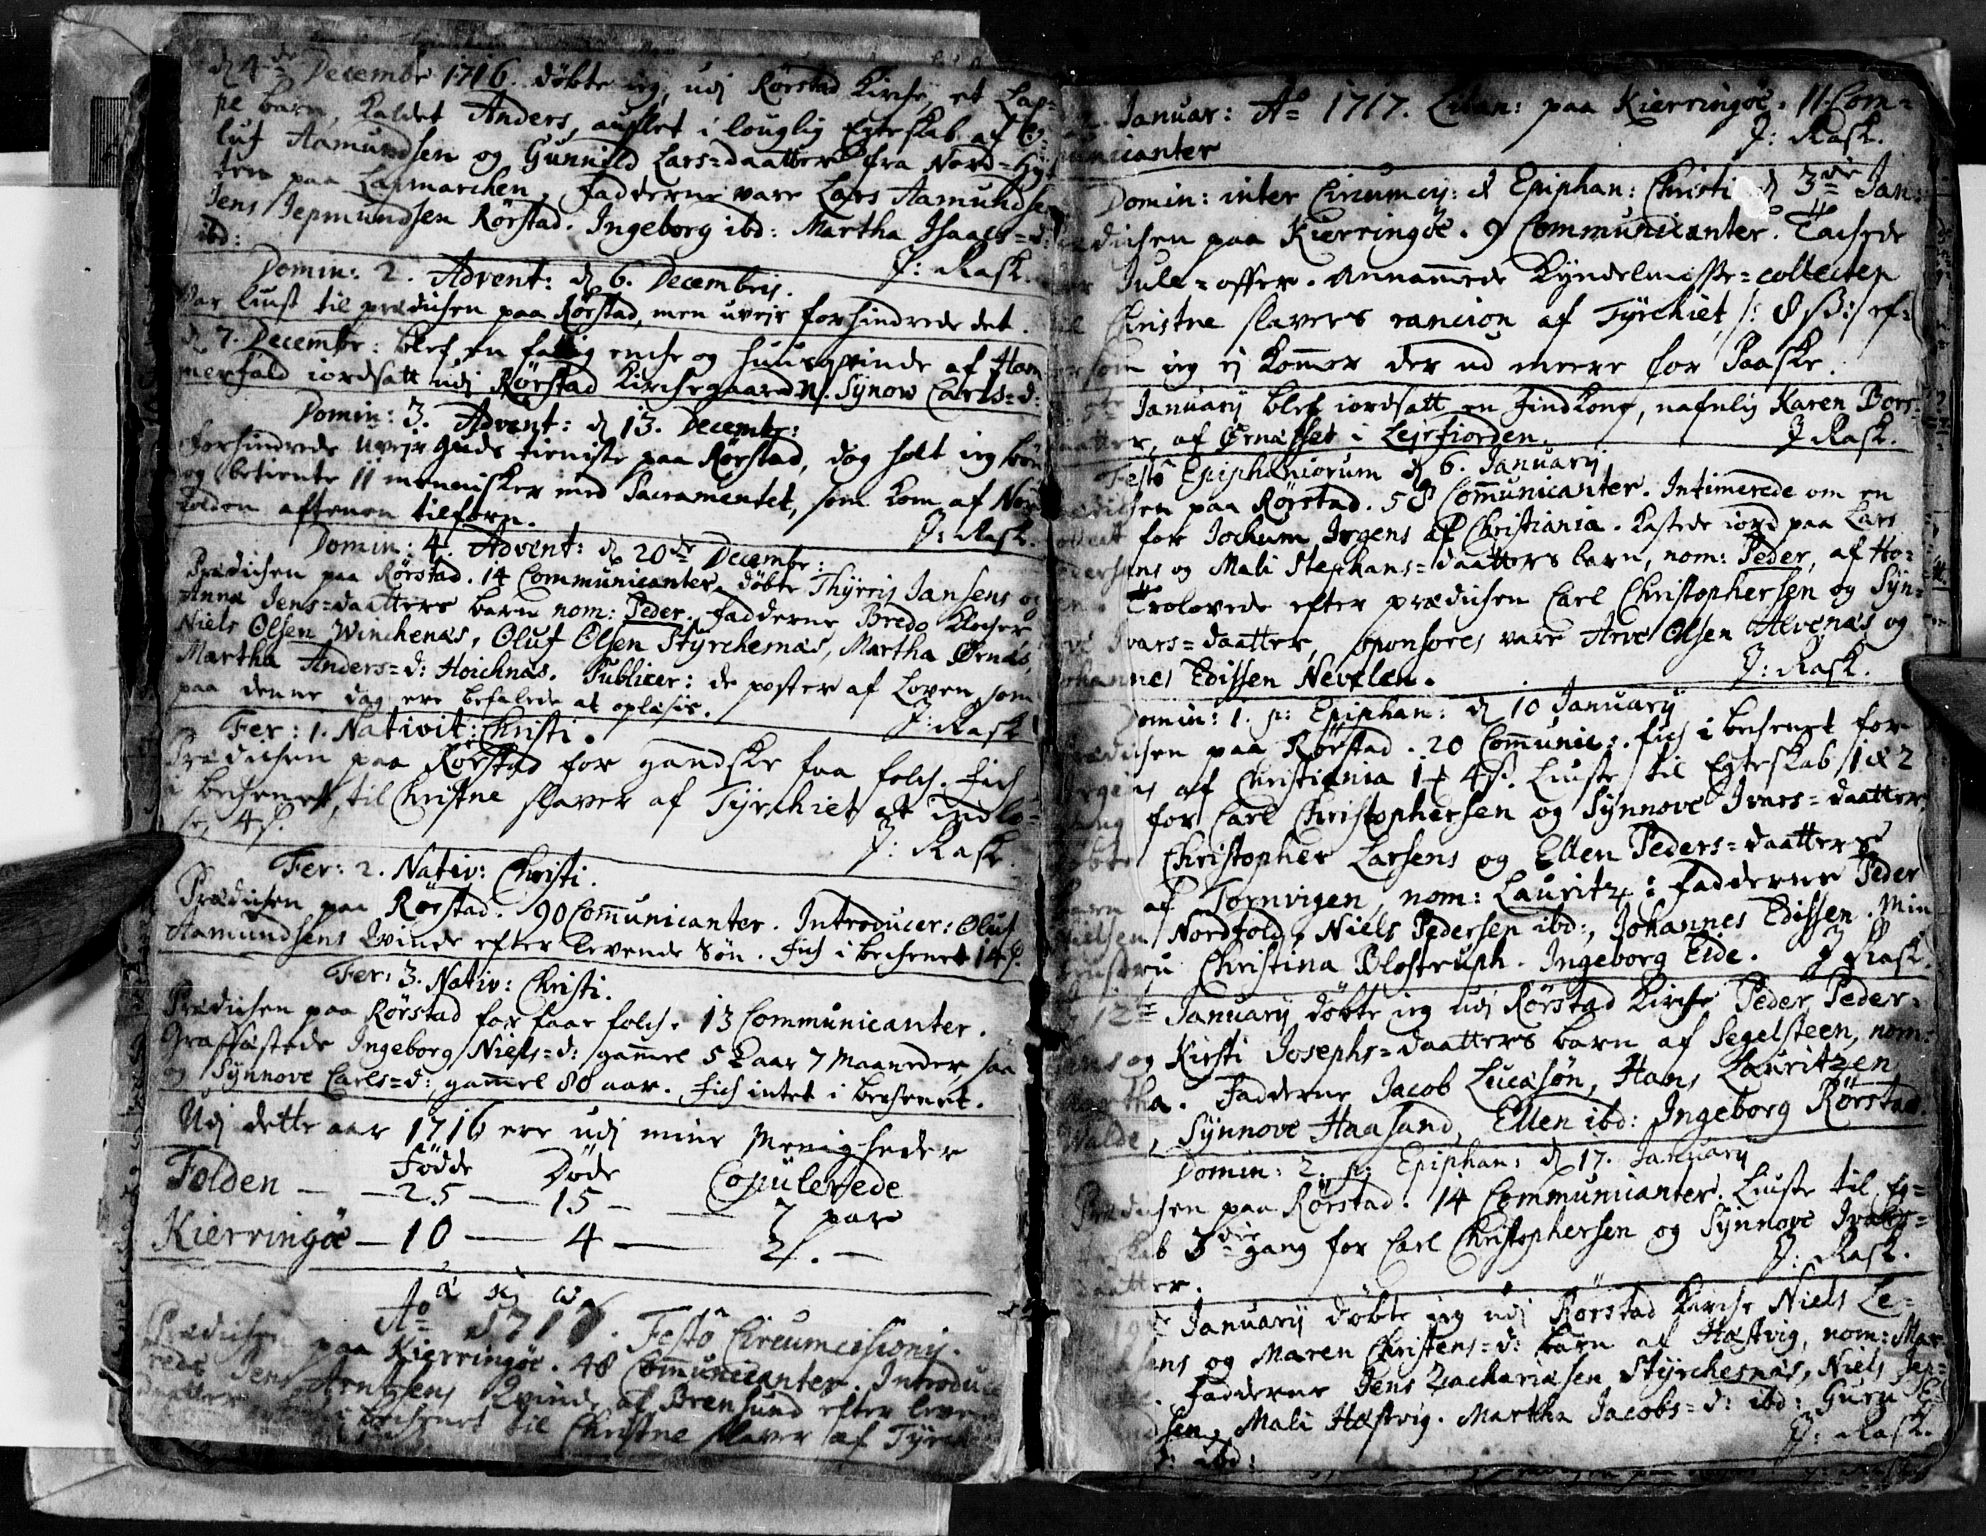 d 4de Decembr 1716. døbte ieg, udj Rørstad Kirche, et Lap=
pe barn, kaldet Anders, auflet i louglig Egteskab af O=
luf Aamundsen og Gunnild Lars=daatter fra Nord=
ten paa Lapmarchen. Fadderne vare Lars Aamundsen
Jens Jepmundsen Rørstad. Ingeborg ibd: Martha Isaacs=d:
ibd: J: Rask.
Domin: 2. Advent: d 6. Decembris.
Var liust til prædichen paa Rørstad, men uveir forhindrede det.
d 7. Decembr: blef en fattig enche og huusqvinde af Ham
merfald iordsatt udj Rørstad Kirchegaard N. Synow Carls=d:
Domin: 3. Advent: d 13. Decembr:
Forhindrede uveir Guds tieniste paa Rørstad, dog holt ieg bøn
og betiente 11 mennisker med Sacramentet, som kom af Nor
folden aftenen tilforn. J: Rask.
Domin: 4. Advent: d 20de Decembr:
Prædichen paa Rørstad. 14 Communicanter. døbte Thyrris Jansens og
Anna Jens=daatters barn nom: Peder. Fadderne Bredo Klocher
Niels Olsen Winchenas, Oluf Olsen Styrchesnas, Martha Ørnas,
Martha Anders=d: Hoichnas. Publicer: de poster af Loven som
paa denne dag ere befalede at oplæsis. J: Rask
Fer: 1. Nativit: Christi.
Prædichen paa Rørstad for gandske faa folch. Fich
i bechenet, til Christne slaver af Tyrchiet at indlø=
se, 4 s. J: Rask.
Fer: 2. Nativ: Christi.
Prædichen paa Rørstad. 90 Communicanter. Introducer: Oluf
Aamundsens Qvinde efter levende Søn. Fich i bechenet 14 s.
Fer: 3. Nativ: Christi.
Prædichen paa Rørstad for faae folch. 13 Communicanter.
Graffæstede Ingeborg Niels=d: gammel 5 aar 7 Maaneder, saa
og Synnove Carls=d: gammel 80 aar. Fich intet i bechenet.
Udj dette aar 1716 ere udj mine Menigheder
Fødde Døde Copulerede
Folden — 25 — 15 — 7 par
Kierringøe — 10 — 4 — 2. —
Ao 1717. Festo Circumcisionis.
Prædichen paa Kierringøe. 48 Communicanter. Introduce
rede Jens Arntsens Qvinde af Brensund efter leven
daatter bechenet til Christne slaver af Tyrch
Januar: Ao 1717. Litan: paa Kierringøe. 11 Com=
municanter J: Rask.
Domin: inter Circumcis: & Epiphan: Christi d 3die Jan:
prædichen paa Kierringøe. 9 Communicanter. Tachede
for Jule=offer. Annammede Kyndelmisse=collecten
til Christne slavers rancion af Tyrchiet /: 8 s :/ ef=
ter som ieg ej kommer der ud meere for Paaske.
5te January blef iordsatt en Findkone, nafnlig Karen Bors=
daatter, af Ørnasset i Leirfiorden. J Rask.
Festo Epiphaniorum d 6. January
Prædichen paa Rørstad. 58 Communicanter. Intimerede om en
collect for Jochum Irgens af Christiania. Kastede iord paa Lars
Pedersens og Mali Stephans=daatters barn, nom: Peder, af Ho=
Trolovede efter prædichen Carl Christophersen og Syn=
nove Ivars=daatter, sponsores vare Arve Olsen Alvenas og
Johannes Edissen Nevelen. J: Rask.
Domin: 1. p: Epiphan: d 10 January
Prædichen paa Rørstad. 20 Communic:. fich i bechenet for
Irgens af Christiania 1 4 s. Liuste til Egteskab 1 & 2
gang for Carl Christophersen og Synnove Ivars=daatter.
døbte Christopher Larsens og Ellen Peders=daatters
barn af Tornvigen, nom: Lauritz: Fadderne Peder
Nielsen Nordfold, Niels Pedersen ibd:, Johannes Edissen. Min
hustru Christina Blostruph. Ingeborg Eide. J Rask.
12te January døbte ieg udj Rørstad Kirche Peder Peder=
sens og Kirsti Josephs=daatters barn af Segelsteen, nom:
Martha. Fadderne Jacob Lucasøn, Hans Lauritzen
Walde, Synnove Haasand, Ellen ibd: Ingeborg Rørstad.
Domin: 2. p: Epiphan: d 17. January
Prædichen paa Rørstad. 14 Communicanter. Liuste til Eg=
teskab 3die gang for Carl Christophersen og Synnove Ivars=
daatter. J: Rask.
19de January døbte ieg udj Rørstad Kirche Niels Le=
sens og Maren Christens=d: barn af Hastvig, nom: Mar
Fadderne Jens Zachariasen Styrchesnas, Niels Jep=
sen, Mali Hastvig. Martha Jacobs=d: ibd: Guru
ibd: J: Rask.